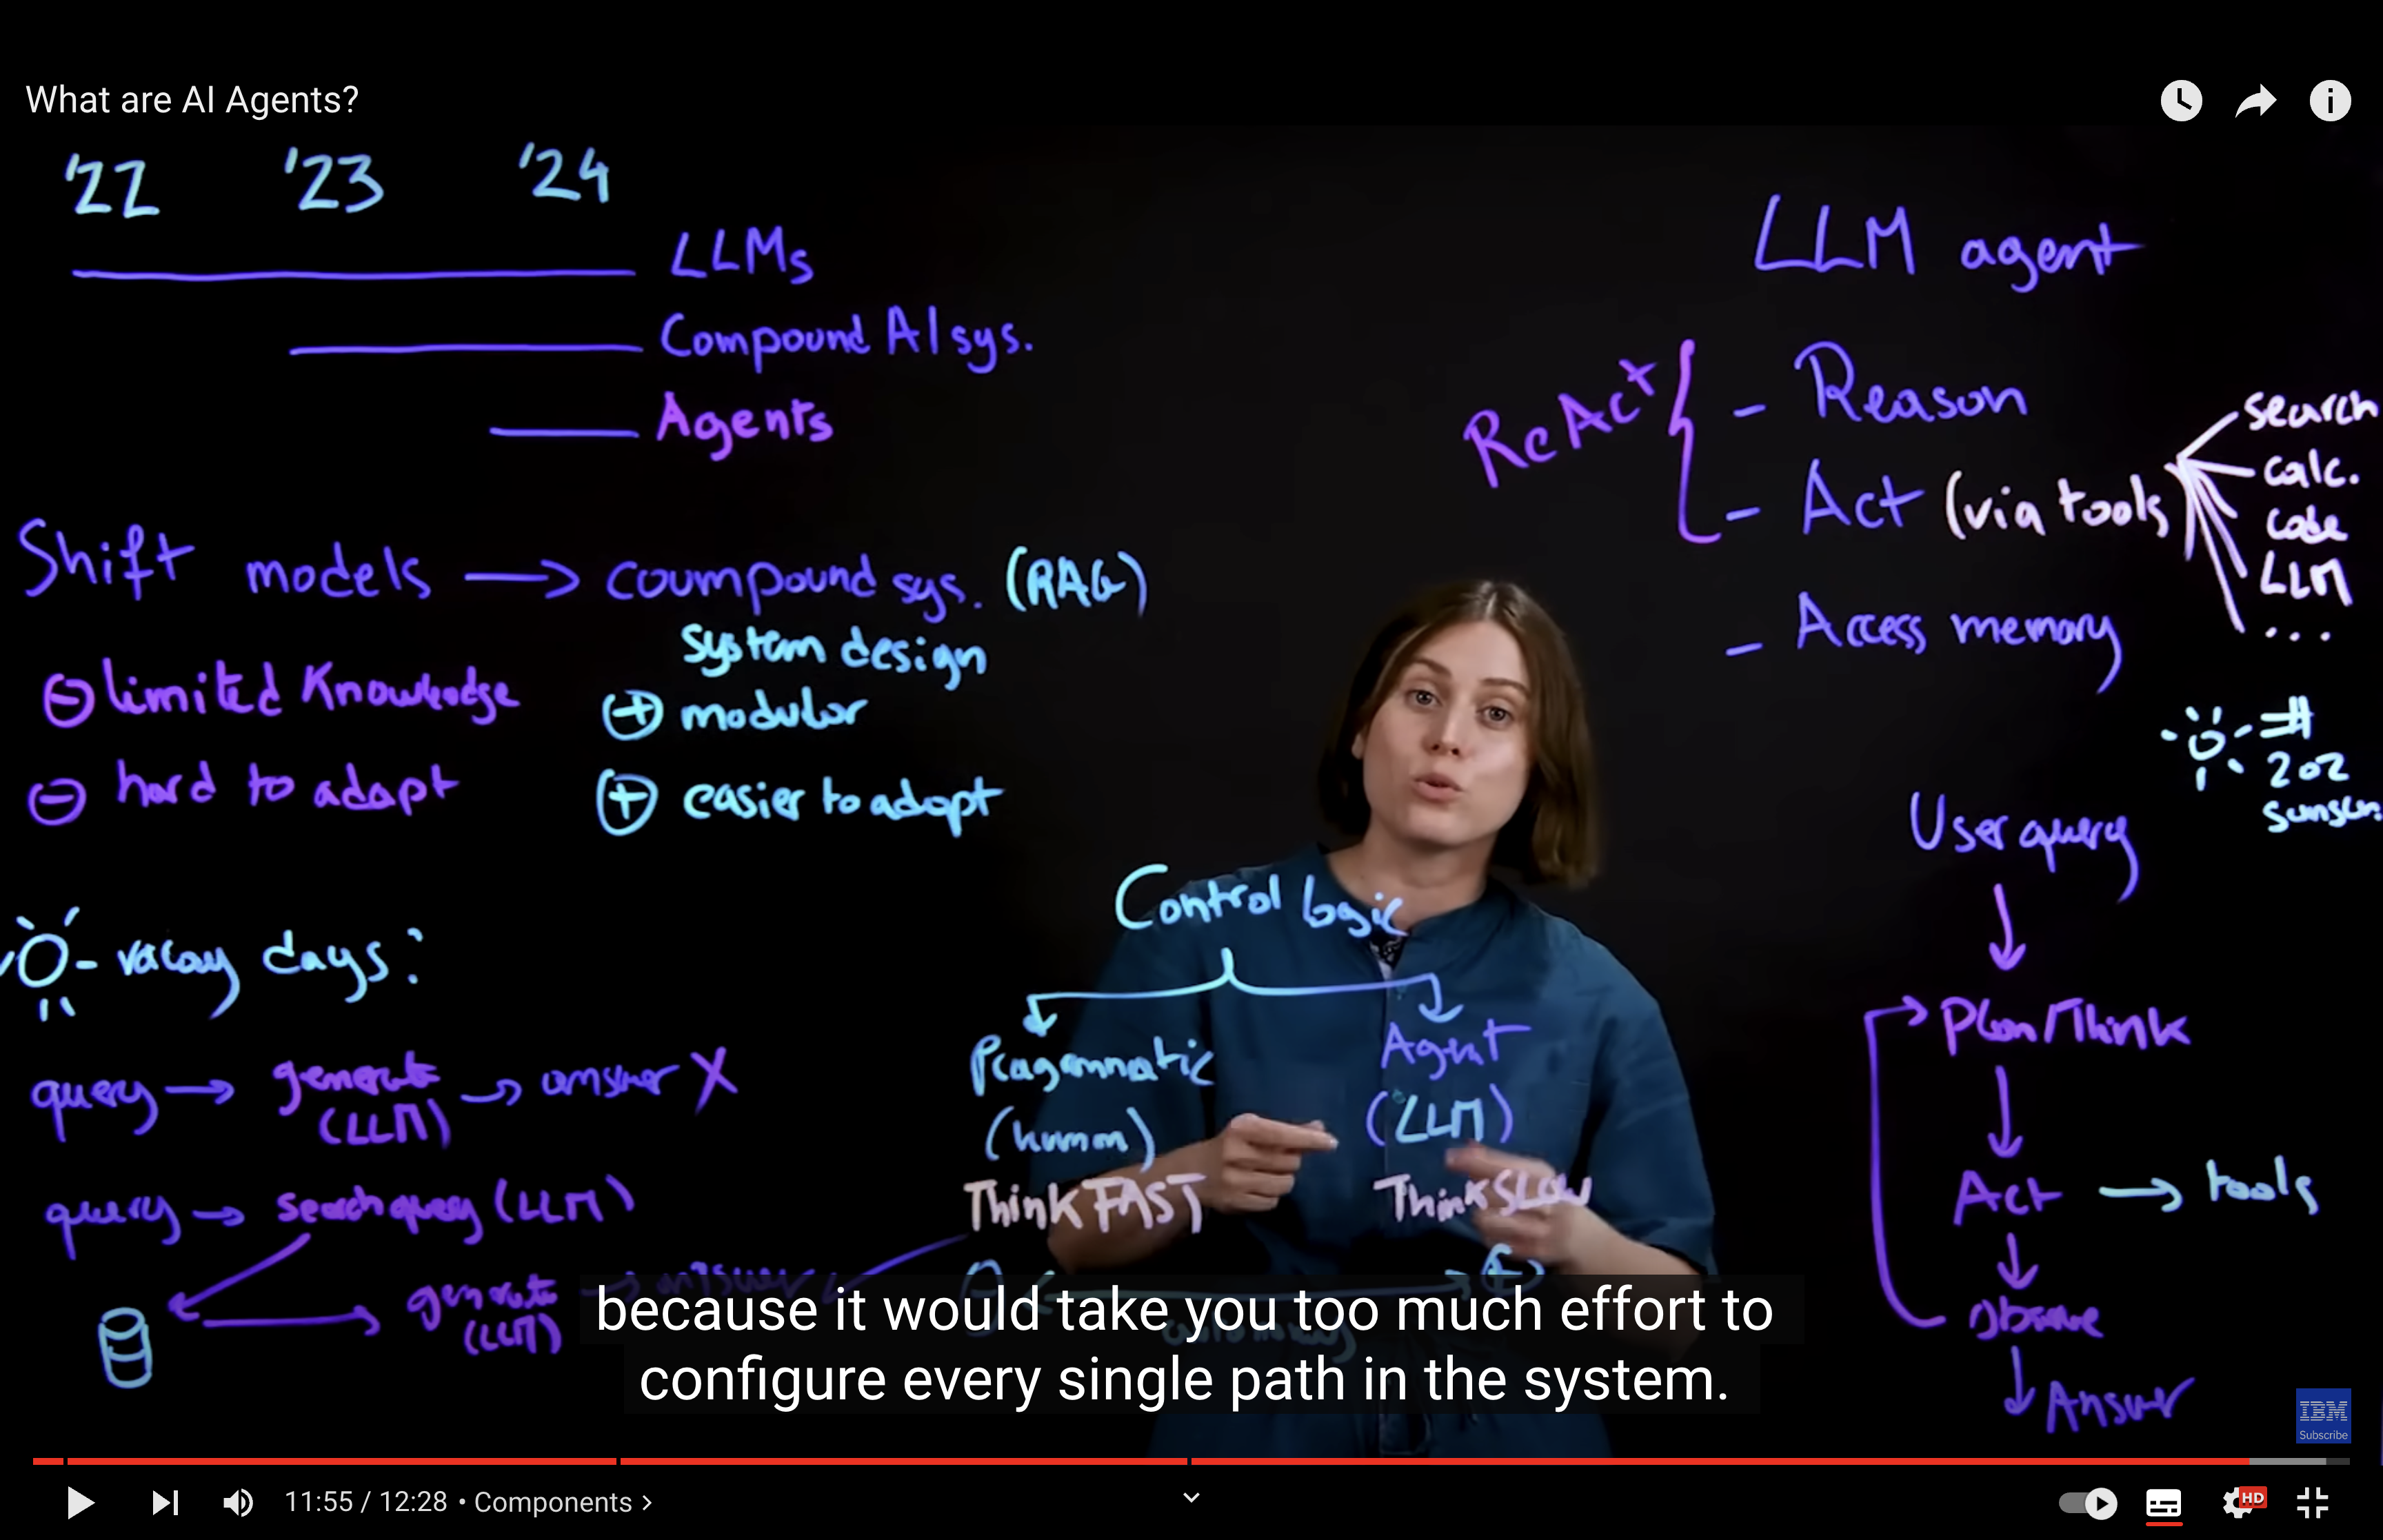 What are AI Agents?
'22 '23 '24
LLMs
Compound AI sys.
Agents
Shift models → coumpound sys. (RAG)
system design
⊖ limited Knowledge
⊕ modular
⊖ hard to adapt
⊕ easier to adapt
vacay days?
query → generate (LLM) → answer X
query → search query (LLM)
generate (LLM) → answer
Control logic
Pragmmatic
(human)
Think FAST
Agent
(LLM)
Think SLOW
LLM agent
ReAct
- Reason
- Act (via tools)
- Access memory
search
calc.
code
LLM
...
#
2oz
sunscr.
User query
Plan/Think
Act → tools
Observe
Answer
because it would take you too much effort to
configure every single path in the system.
IBM
Subscribe
11:55 / 12:28 • Components >
HD